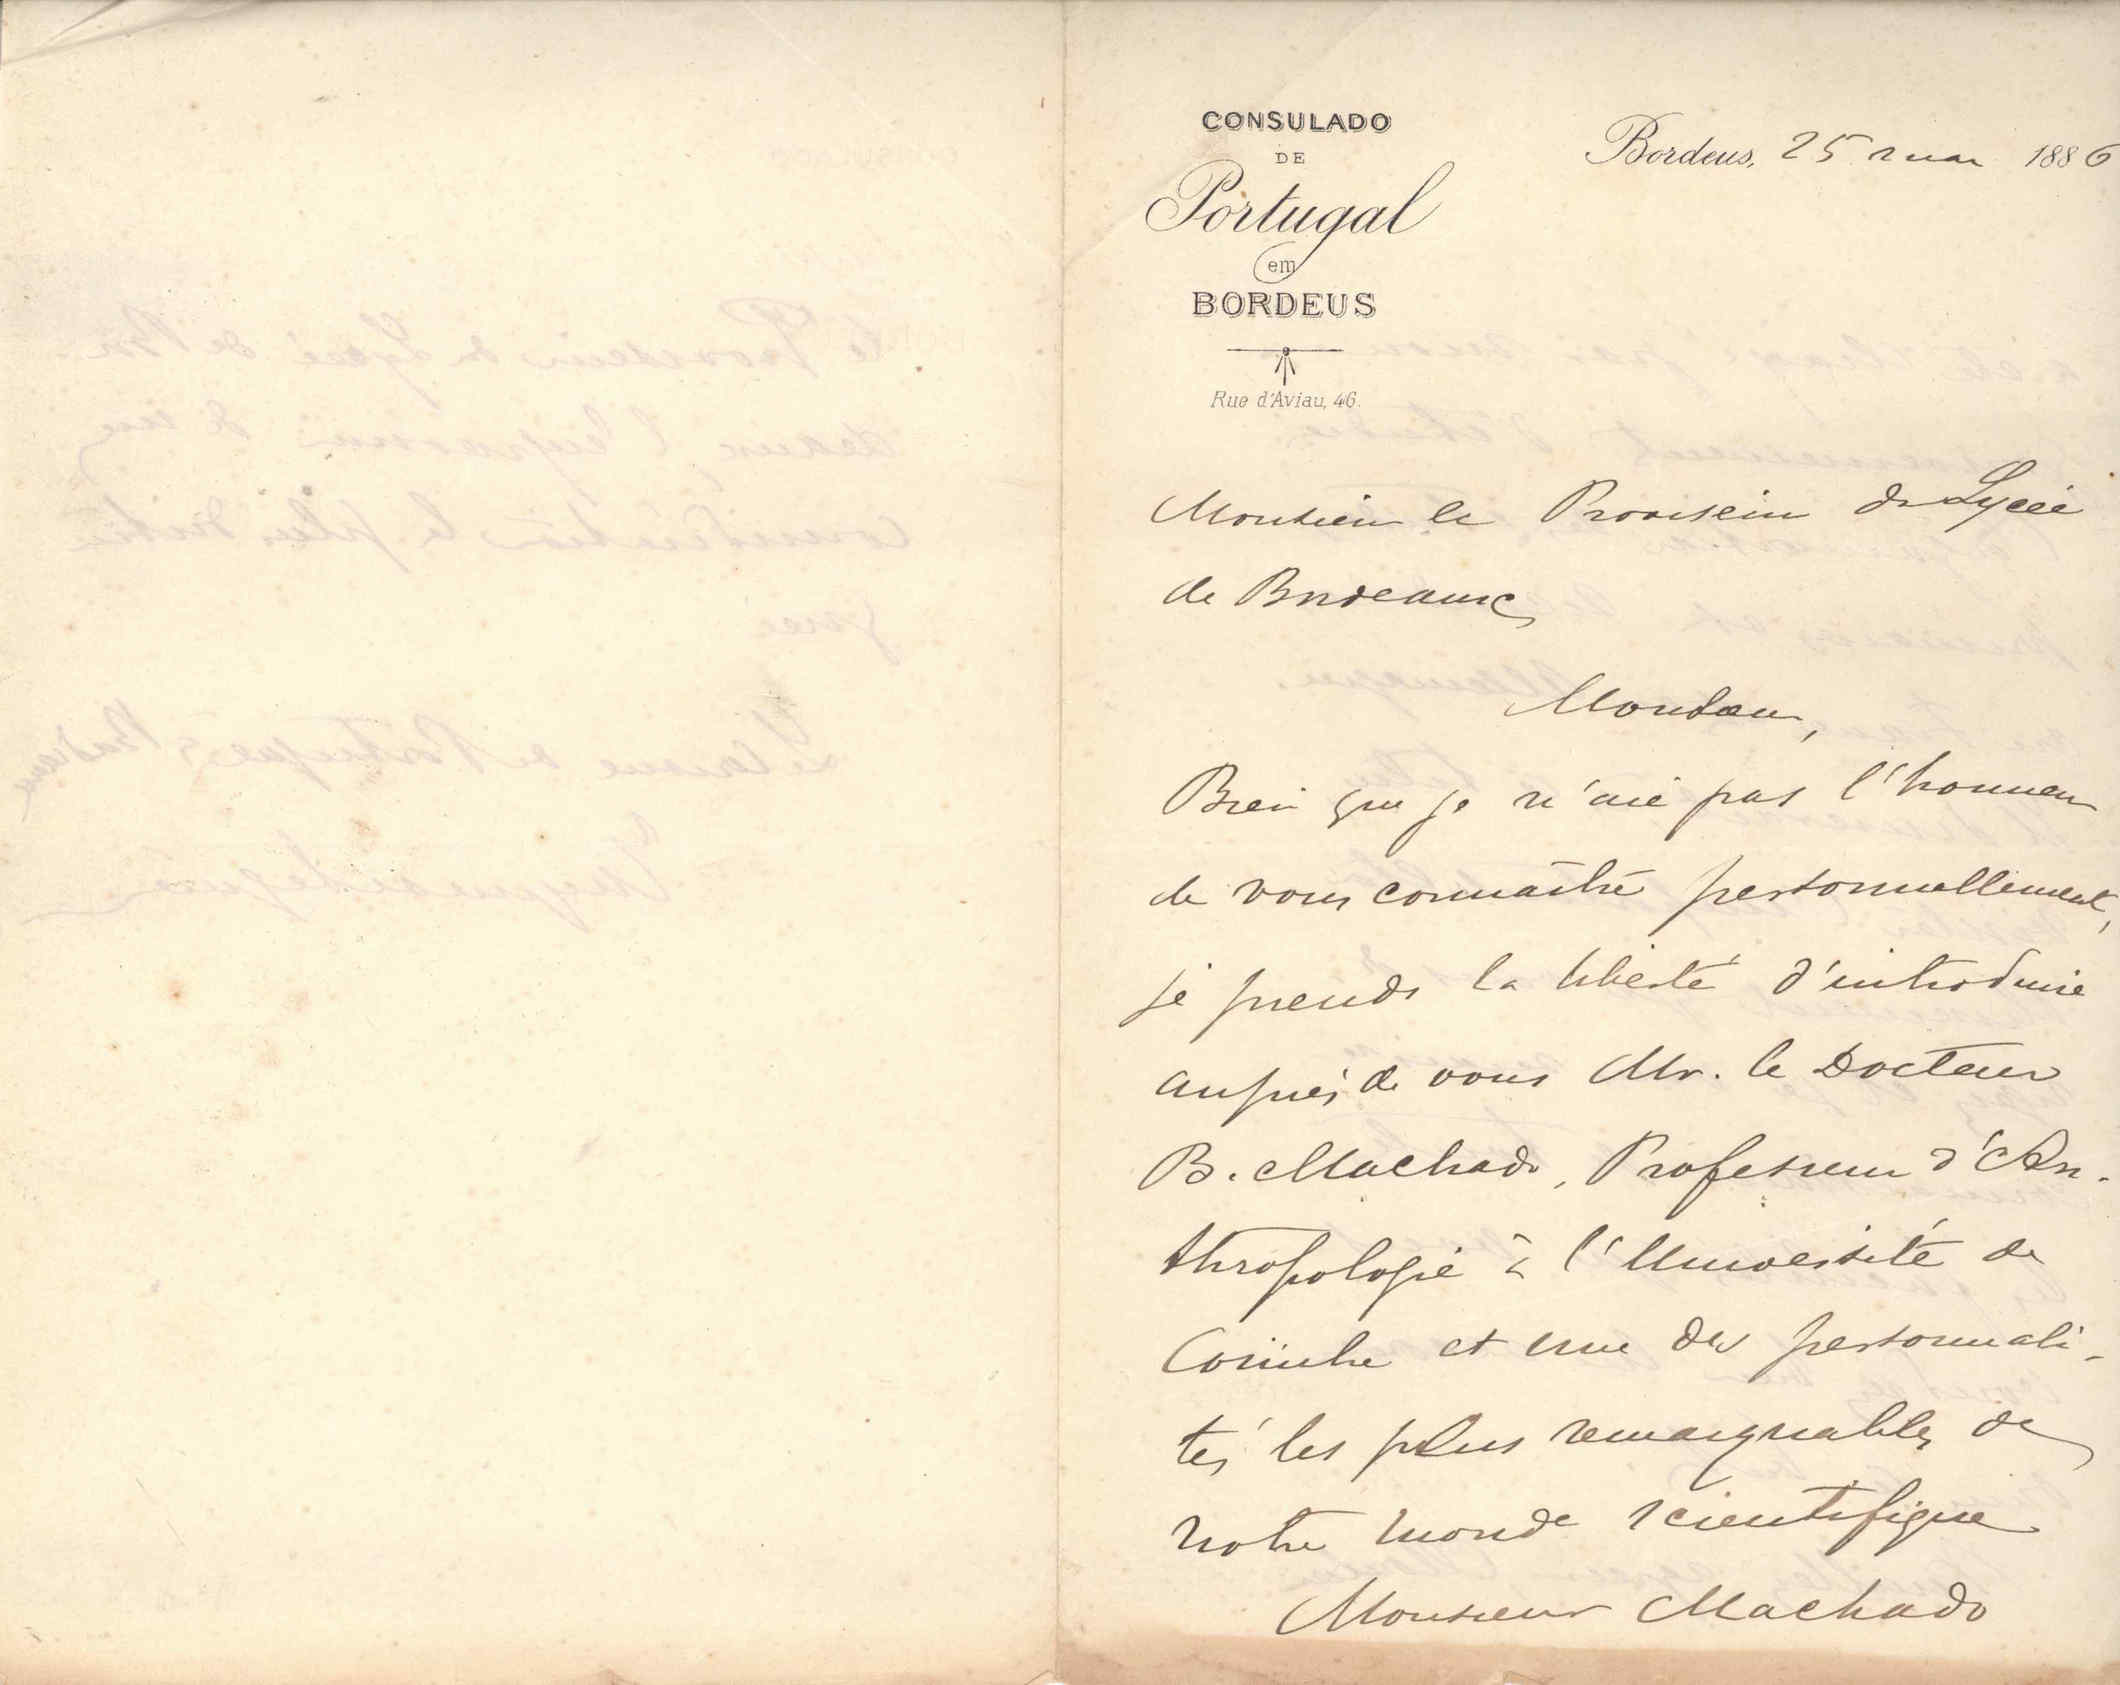 CONSULADO
DE
Portugal
em
BORDEUS
Rue d'Aviau, 46.
Bordeus, 25 mar 1886
Monsieur le Proviseur du Lycée
de Bordeaux,
Monsieur,
Bien que je n'aie pas l'honneur
de vous connaître personnellement,
je prends la liberté d'introduire
auprès de vous Mr. le Docteur
B. Machado, Professeur d'An-
thropologie à l'Université de
Coimbre et une des personnali-
tés les plus remarquables de
notre monde scientifique
Monsieur Machado